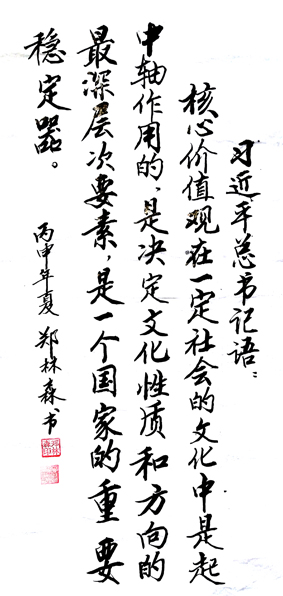 习近平总书记语：
核心价值观在一定社会的文化中是起
中轴作用的，是决定文化性质和方向的
最深层次要素，是一个国家的重要
稳定器。
丙申年夏 郑林森书